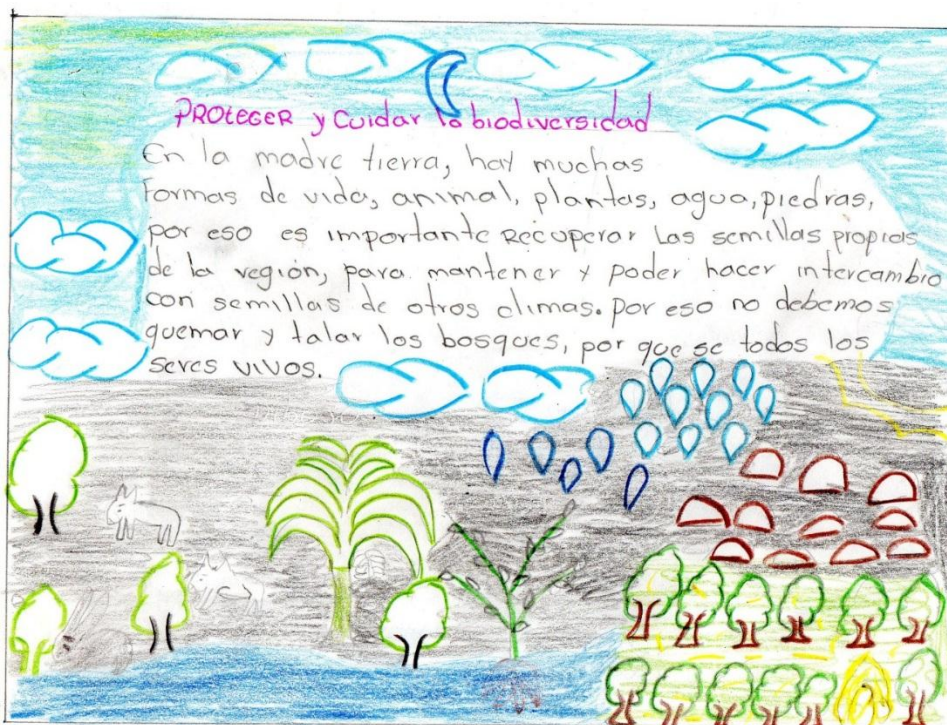 PROTEGER y Cuidar la biodiversidad
En la madre tierra, hay muchas
Formas de vida, animal, plantas, agua, piedras,
por eso es importante Recuperar Las semillas propias
de la región, para mantener y poder hacer intercambio
con semillas de otros climas. por eso no debemos
quemar y talar los bosques, por que se todos los
seres vivos.